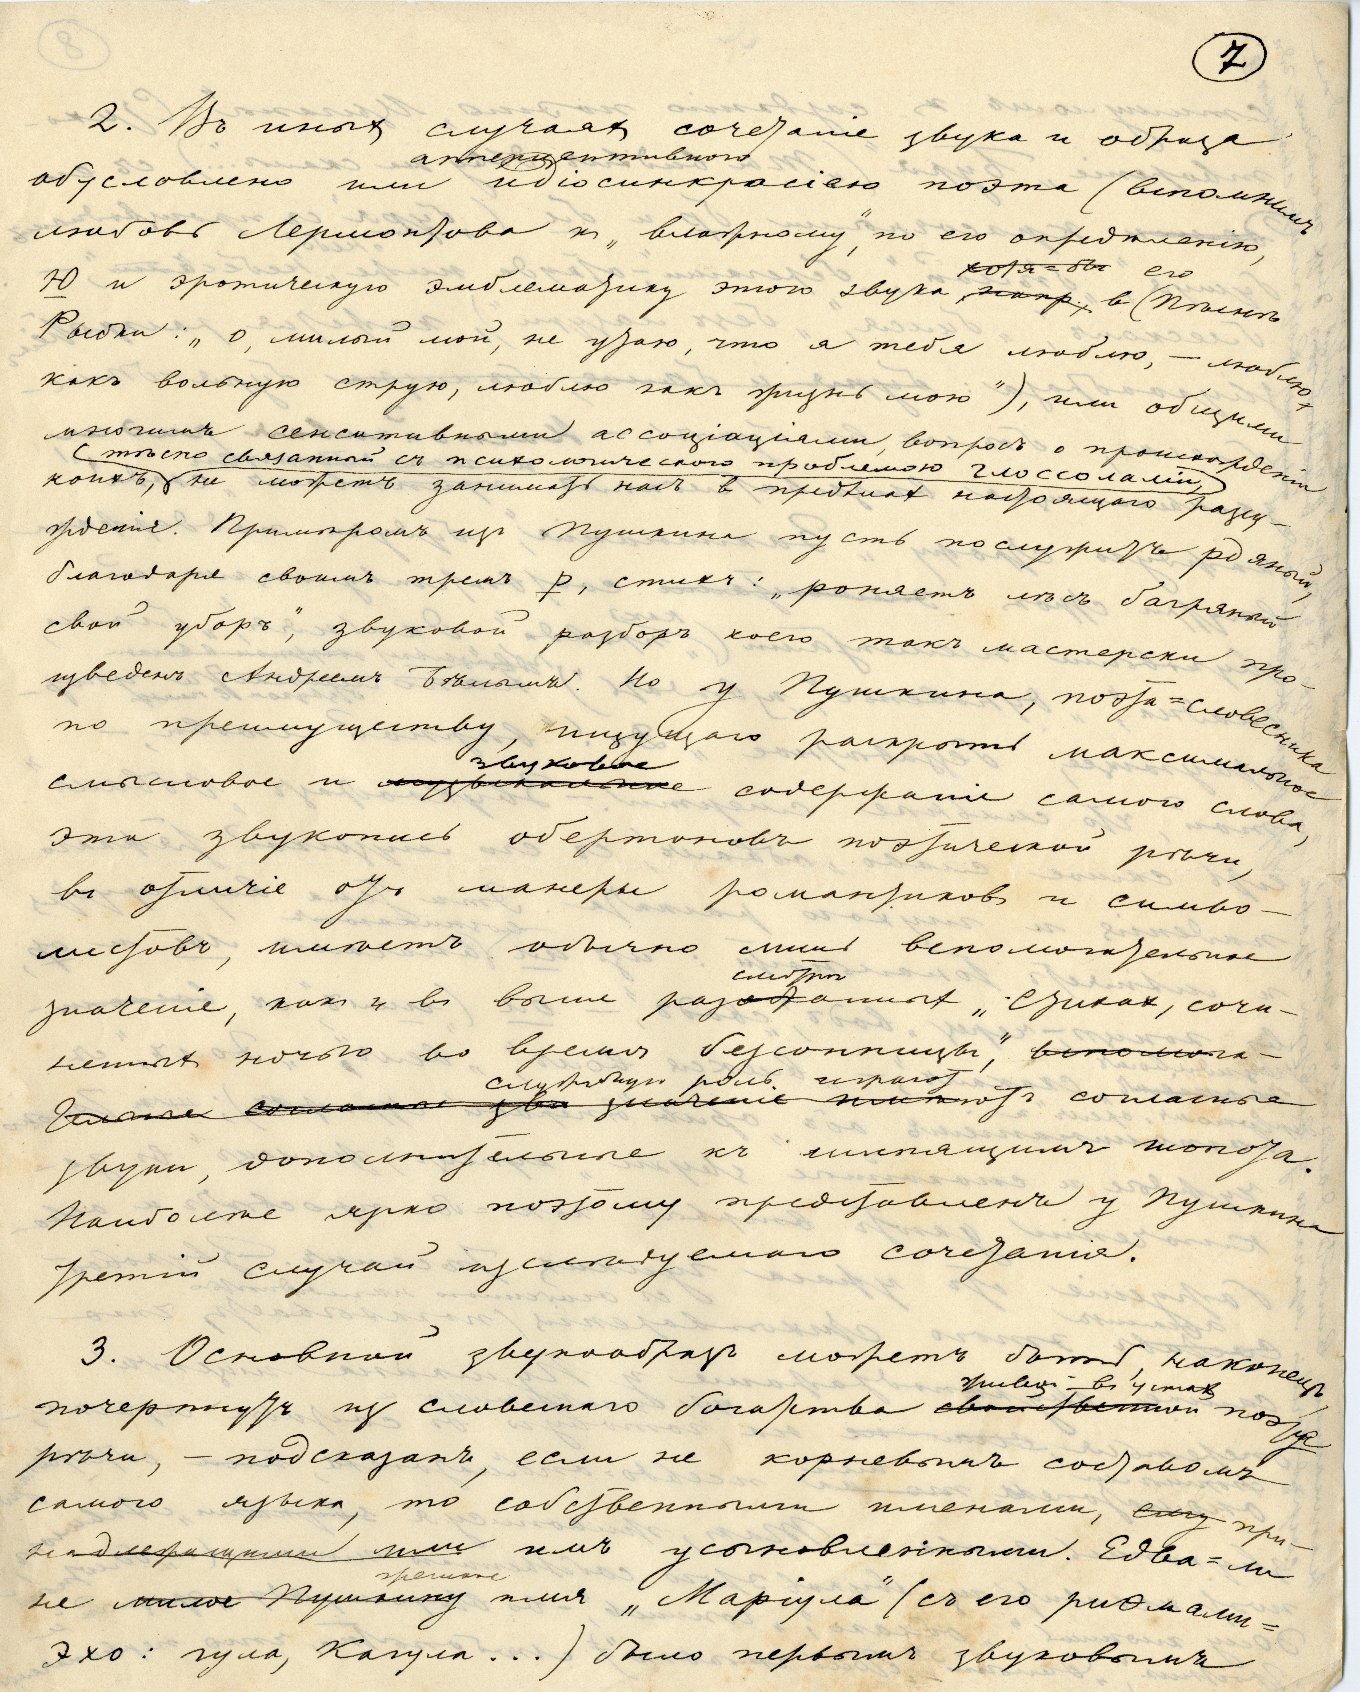 7
2. Въ иныхъ случаяхъ сочетаніе звука и образа
апперцептивною
обусловлено или идіосинкрасіею поэта (вспомнимъ
любовь Лермонтова къ „влажному“, по его опредѣленію,
хотя-бы его
Ю и эротическую эмблематику этого звука, напр., въ (Пѣснѣ
Рыбки: „о, милый мой, не утаю, что я тебя люблю, — люблю
какъ вольную струю, люблю какъ жизнь мою“), или общими
многимъ сенситивными ассоціаціями, вопросъ о происхожденіи
(тѣсно связанный съ психологическою проблемою глоссолаліи,)
коихъ, не можетъ занимать насъ въ предѣлахъ настоящаго разсу-
жденія. Примѣромъ изъ Пушкина пусть послужитъ рдяный,
благодаря своимъ тремъ р, стихъ: „роняетъ лѣсъ багряный
свой уборъ“, звуковой разборъ коего такъ мастерски про-
изведенъ Андреемъ Бѣлымъ. Но у Пушкина, поэта-словесника
по преимуществу, ищущаго раскрыть максимальное
звуковое
смысловое и музыкальное содержаніе самого слова,
эта звукопись обертоновъ поэтической рѣчи,
въ отличіе отъ манеры романтиковъ и симво-
листовъ, имѣетъ обычно лишь вспомогательное
смотрѣн
значеніе, какъ и въ выше разобранныхъ „Стихахъ, сочи-
ненныхъ ночью во время безсонницы“, вспомога-
служебную роль играютъ
тельное согласные два значеніе имѣютъ согласные
звуки, дополнительные къ шипящимъ шопота.
Наиболѣе ярко поэтому представленъ у Пушкина
третій случай изслѣдуемаго сочетанія.
3. Основной звукообразъ можетъ быть, наконецъ,
живой въ устахъ
почерпнутъ изъ словеснаго богатства свойственной поэта
рѣчи, — подсказанъ, если не корневымъ составомъ
самого языка, то собственными именами, ему при-
надлежащими или имъ усыновленными. Едва-ли
не милое Пушкину имя „Маріула“ (съ его риѳмами-
эхо: гула, Кагула...) было первымъ звуковымъ